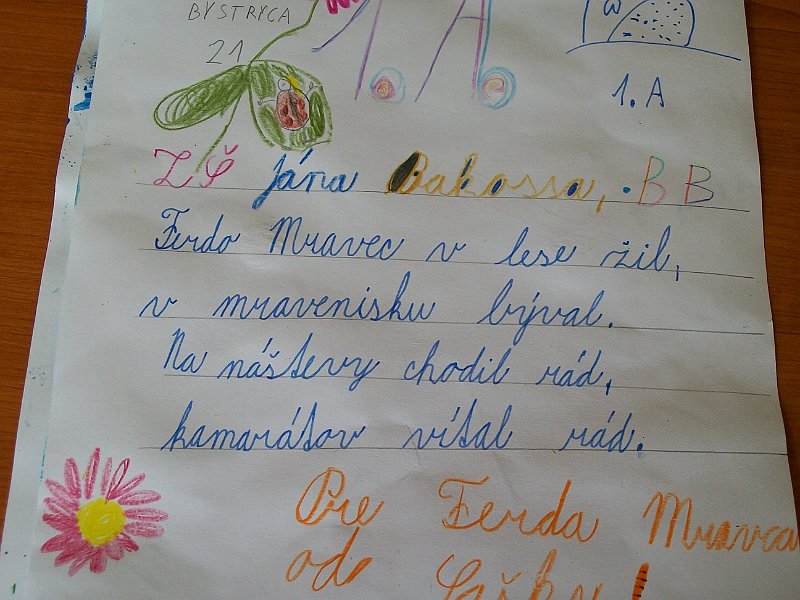 BYSTRYCA
21
1.A.
1. A
ZŠ Jána Bakossa, BB
Ferdo Mravec v lese žil,
v mravenisku býval.
Na náštevy chodil rád,
kamarátov vítal rád.
Pre Ferda Mravca
od Sašky!